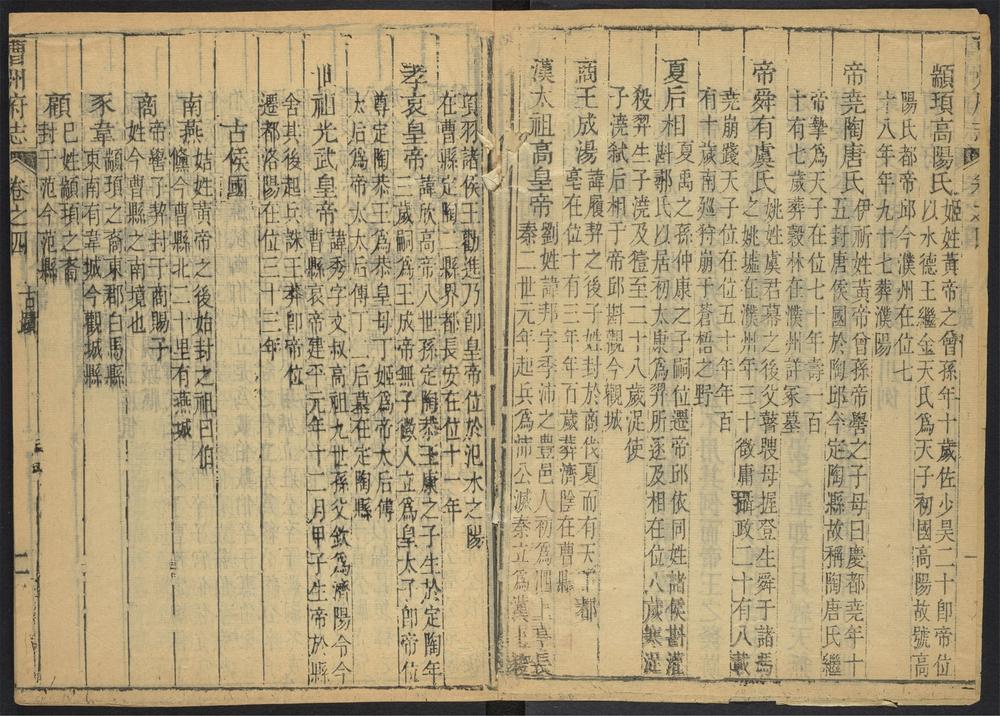 顓頊高陽氏姬姓黃帝之曾孫年十歲佐少昊二十即帝位
以水德王繼金天氏爲天子初國高陽故號高
陽氏都帝邱今濮州在位七
十八年年九十七葬濮陽
帝堯陶唐氏伊祈姓黃帝曾孫帝嚳之子母曰慶都堯年十
五封唐侯國於陶邱今定陶縣故稱陶唐氏繼
帝摯爲天子在位七十年壽一百
十有七歲葬穀林在濮州詳冢墓
帝舜有虞氏姚姓虞君幕之後父瞽瞍母握登生舜于諸馮
之姚墟在濮州年三十徵庸攝政二十有八載
堯崩踐天子位在位五十年年百
有十歲南廵狩崩于蒼梧之野
夏后相夏禹之孫仲康之子嗣位遷帝邱依同姓諸侯斟灌
斟鄩氏以居初太康爲羿所逐及相在位八歲寒浞
殺羿生子澆及豷至二十八歲浞使
子澆弑相于帝邱斟觀今觀城
商王成湯諱履契之後子姓封於商伐夏而有天下都
亳在位十有三年年百歲葬濟陰在曹縣
漢太祖高皇帝劉姓諱邦字季沛之豊邑人初爲泗上亭長
秦二世元年起兵爲沛公滅秦立爲漢王
項羽諸侯王勸進乃卽皇帝位於汜水之陽
在曹縣定陶二縣界都長安在位十一年
孝哀皇帝諱欣高帝八世孫定陶恭王康之子生於定陶年
三歲嗣爲王成帝無子徵入立爲皇太子卽帝位
尊定陶恭王爲恭皇母丁姬爲帝太后傅
太后爲帝太太后傅丁二后墓在定陶縣
世祖光武皇帝諱秀字文叔高祖九世孫父欽爲濟陽令今
曹縣哀帝建平元年十二月甲子生帝於縣
舍其後起兵誅王莽卽帝位
遷都洛陽在位三十三年
古侯國
南燕姞姓黃帝之後始封之祖曰伯
儵今曹縣北二十里有燕城
商帝嚳子契封于商賜子
姓今曹縣之南境也
豕韋顓頊之裔東郡白馬縣
東南有韋城今觀城縣
顧己姓顓頊之裔
封于范今范縣
曹州府志 卷之四 古蹟 二